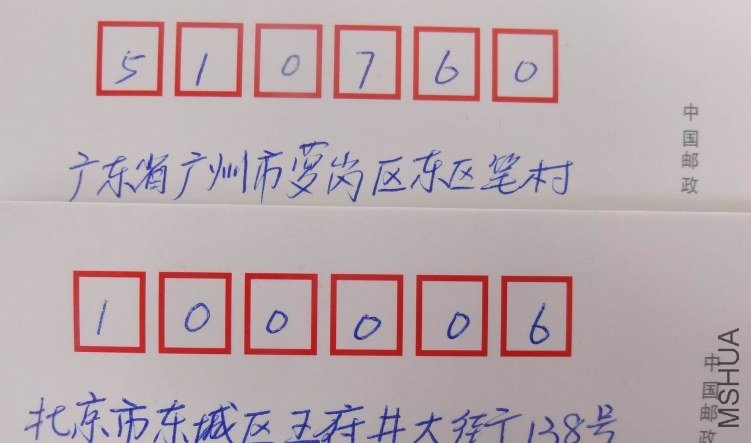 510760
广东省广州市萝岗区东区笔村
中国邮政
100006
北京市东城区王府井大街138号
中国邮政
MSHUA